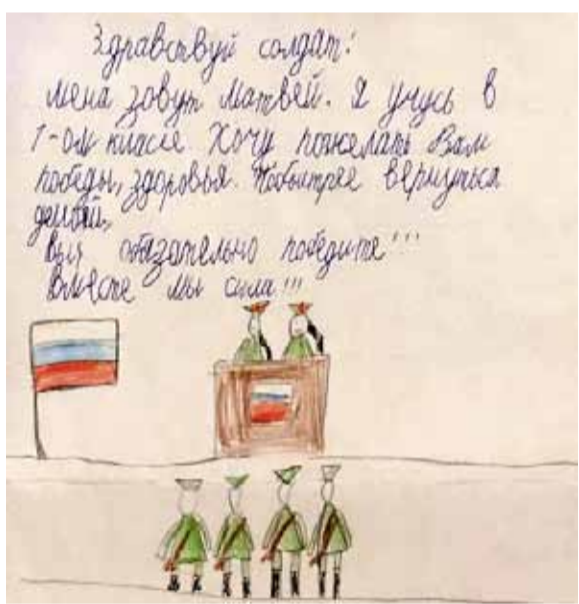 Здравствуй солдат!
Меня зовут Матвей. Я учусь в
1-ом классе Хочу пожелать Вам
победы, здоровья. Побыстрее вернуться
домой,
Вы обязательно победите!!!
Вместе мы сила!!!